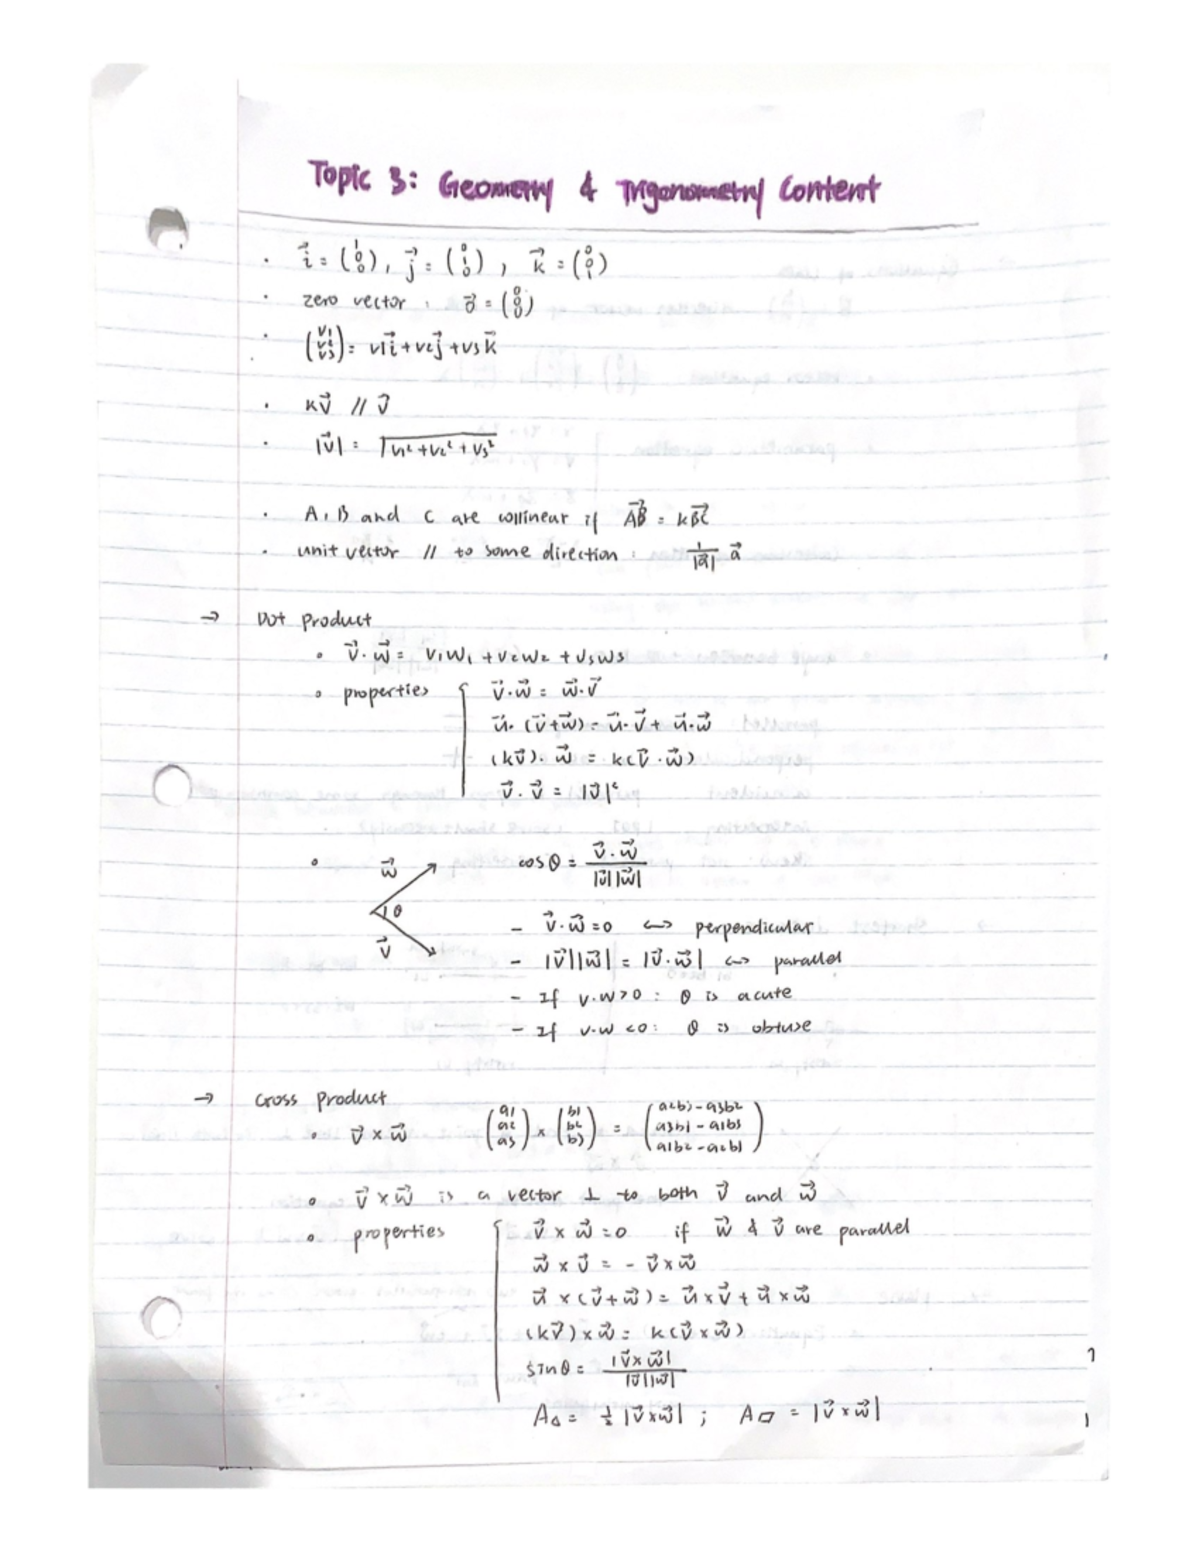 Topic 3: Geometry & Trigonometry Content
• i⃗ = (1 0 0), j⃗ = (0 1 0), k⃗ = (0 0 1)
• zero vector : 0⃗ = (0 0 0)
• (v1 v2 v3) = v1i⃗ + v2j⃗ + v3k⃗
• kv⃗ // v⃗
• |v⃗| = √(v₁² + v₂² + v₃²)
• A, B and C are collinear if AB⃗ = kBC⃗
• unit vector // to some direction : 1/|a⃗| a⃗
→ Dot Product
• v⃗ · w⃗ = v₁w₁ + v₂w₂ + v₃w₃
• properties { v⃗·w⃗ = w⃗·v⃗
u⃗·(v⃗+w⃗) = u⃗·v⃗ + u⃗·w⃗
(kv⃗)·w⃗ = k(v⃗·w⃗)
v⃗·v⃗ = |v⃗|²
• w⃗ θ v⃗ cosθ = v⃗·w⃗ / |v⃗||w⃗|
- v⃗·w⃗ = 0 ↔ perpendicular
- |v⃗||w⃗| = |v⃗·w⃗| ↔ parallel
- If v·w > 0 : θ is acute
- If v·w < 0 : θ is obtuse
→ Cross Product
• v⃗ × w⃗ (a1 a2 a3) × (b1 b2 b3) = (a2b3 - a3b2 a3b1 - a1b3 a1b2 - a2b1)
• v⃗ × w⃗ is a vector ⊥ to both v⃗ and w⃗
• properties { v⃗ × w⃗ = 0 if w⃗ & v⃗ are parallel
w⃗ × v⃗ = - v⃗ × w⃗
u⃗ × (v⃗+w⃗) = u⃗ × v⃗ + u⃗ × w⃗
(kv⃗) × w⃗ = k(v⃗ × w⃗)
sinθ = |v⃗ × w⃗| / |v⃗||w⃗|
A△ = ½ |v⃗×w⃗| ; A▱ = |v⃗×w⃗|